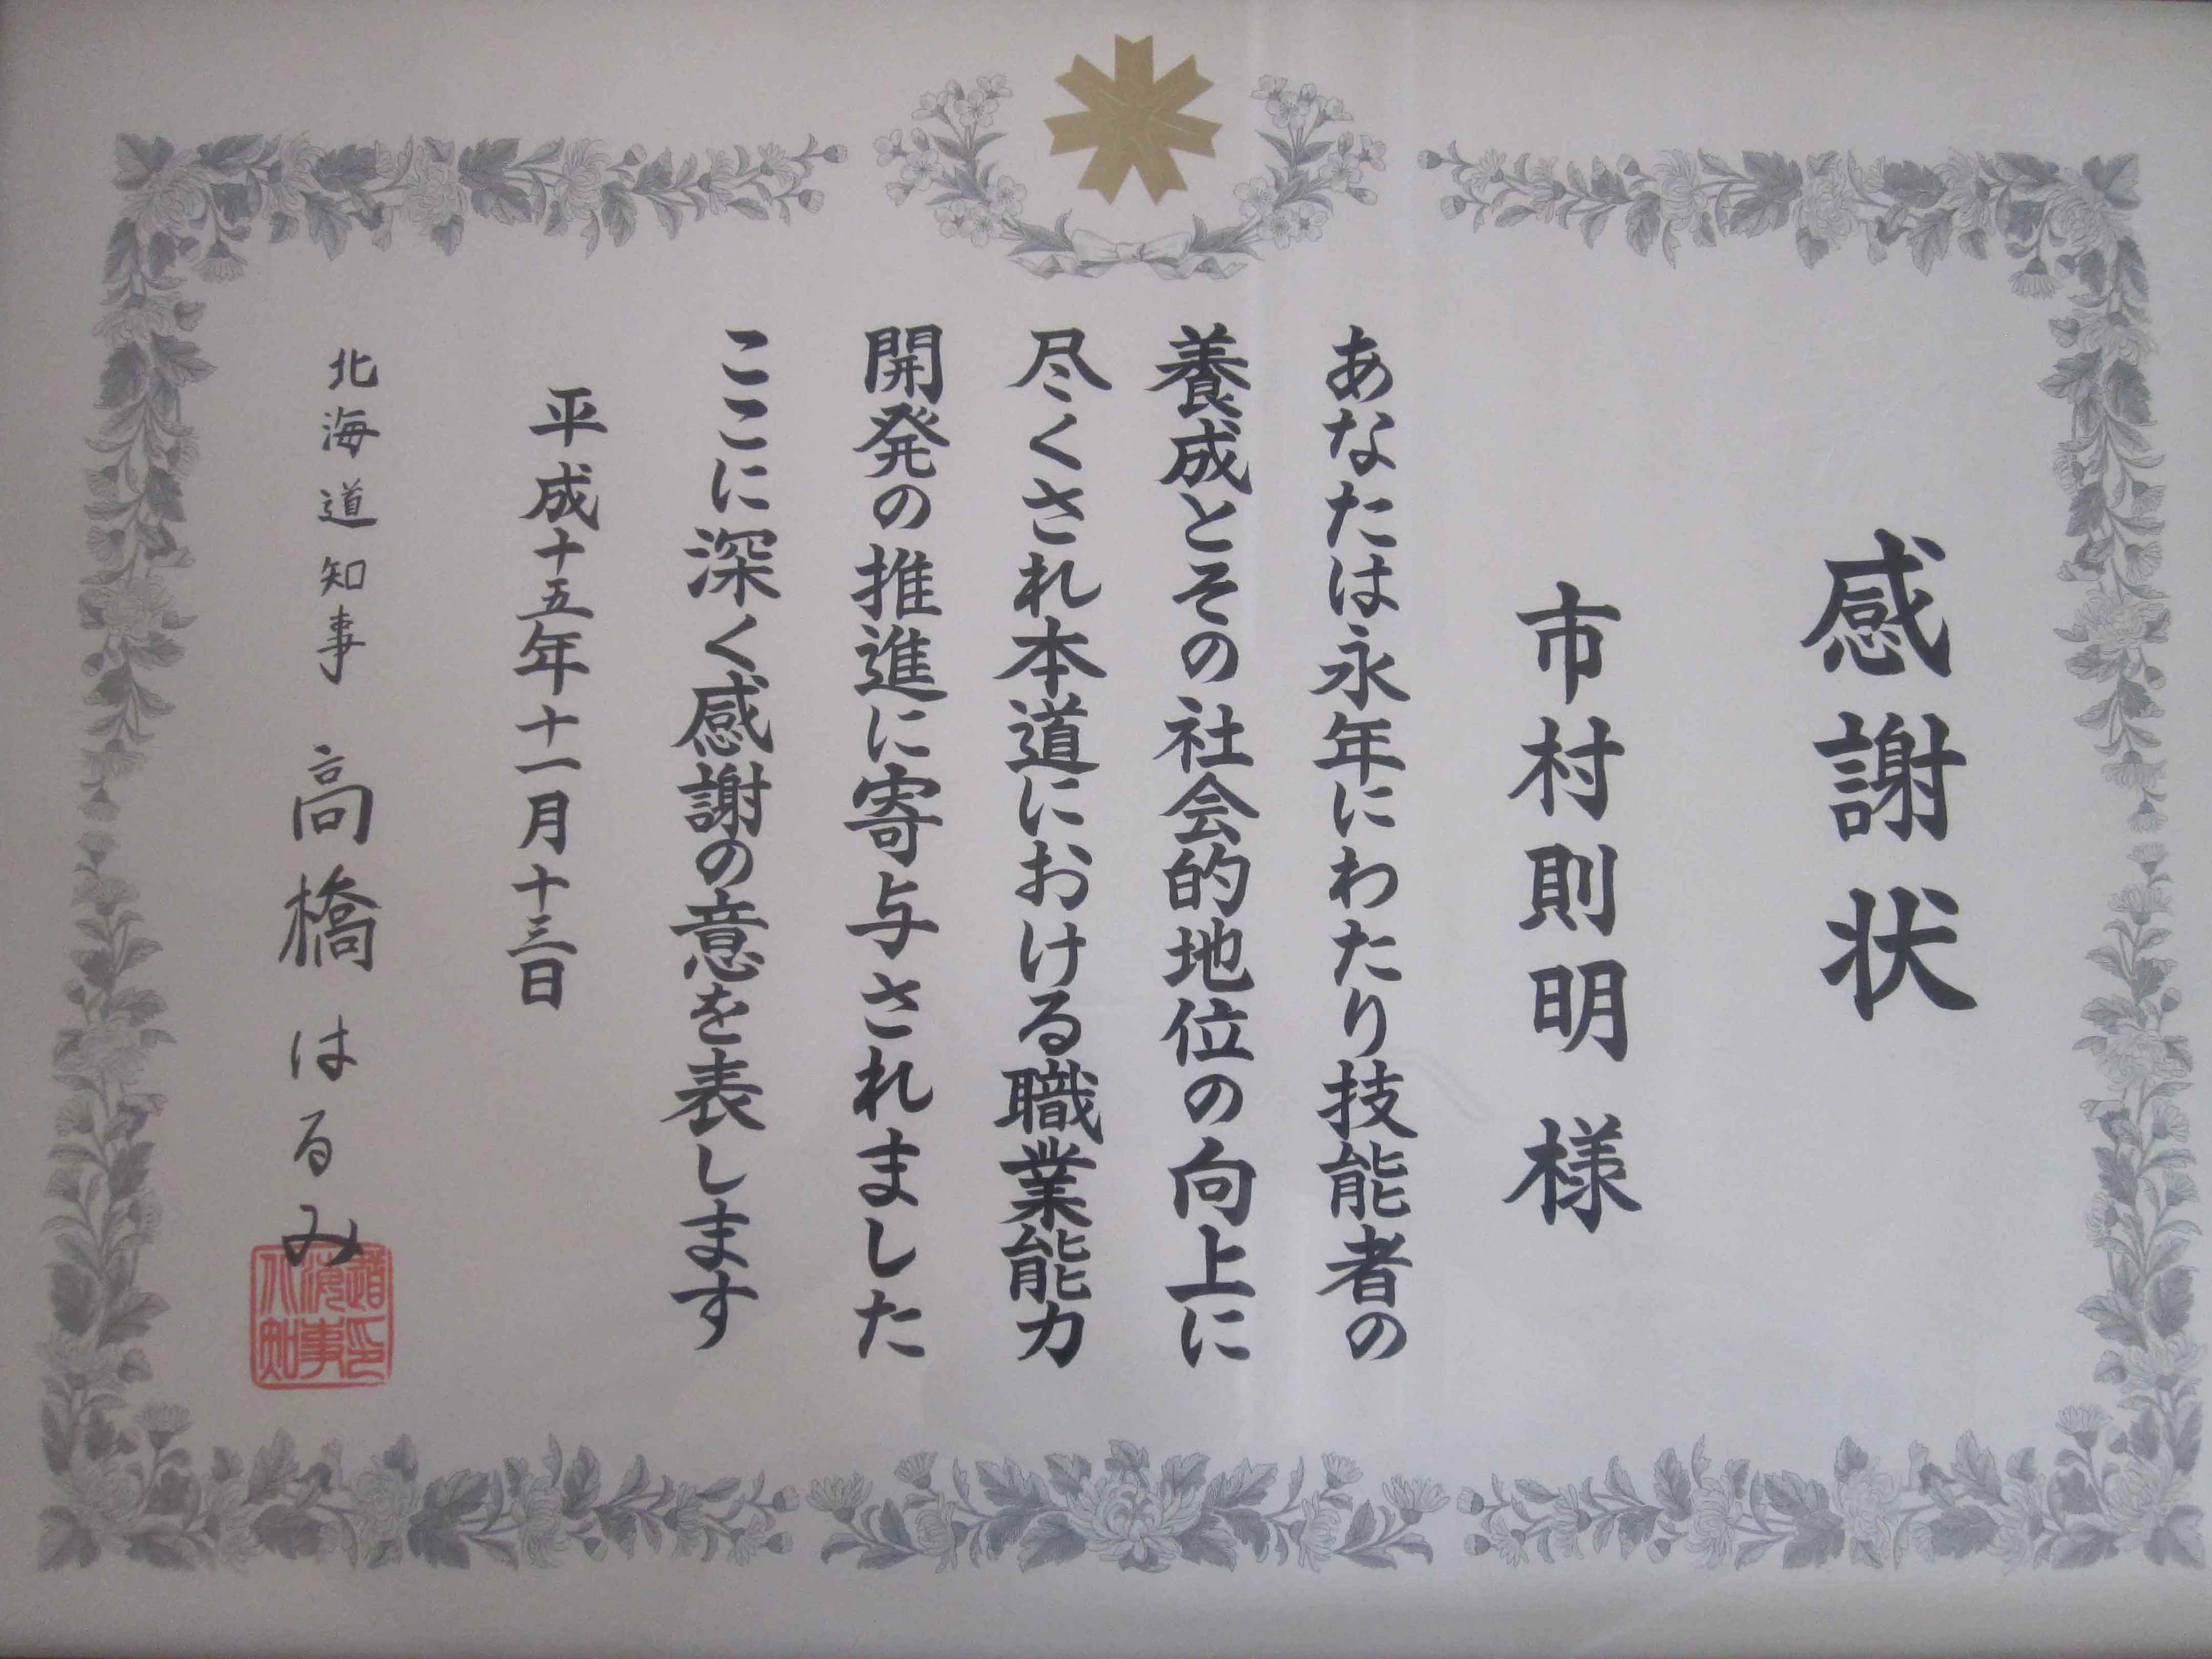 感謝状
市村則明 様
あなたは永年にわたり技能者の
養成とその社会的地位の向上に
尽くされ本道における職業能力
開発の推進に寄与されました
ここに深く感謝の意を表します
平成十五年十一月十三日
北海道知事 高橋はるみ
北海道知事印